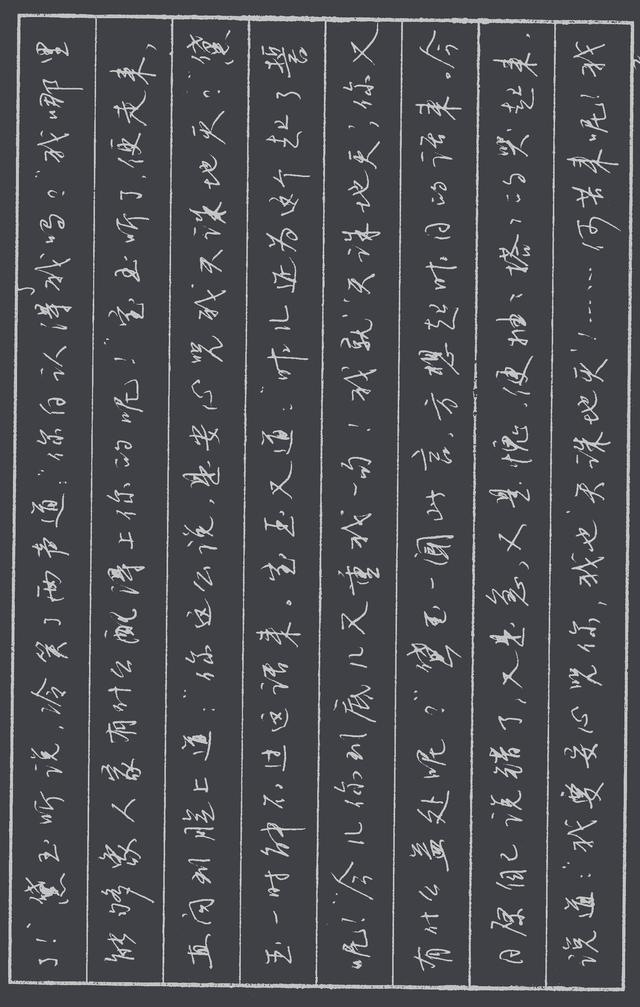 了!”黛玉听说,冷笑了两声道:“你白认得我吗?我哪里
能够像人家有什么配得上你的呢!”宝玉听了,便走来,
直问到脸上道:“你这么说,是安心咒我天诛地灭?”黛
玉一时解不过这话来。宝玉又道:“昨儿还为这个起了誓
呢!今儿你到底儿又重我一句!我就‘天诛地灭’,你又
有什么益处呢?”黛玉一闻此言,方想起昨日的话来。今
日原自己说错了,又是急,又是愧,便抽抽搭搭的哭起来,
说道:“我要安心咒你,我也‘天诛地灭’!……何苦来呢!我